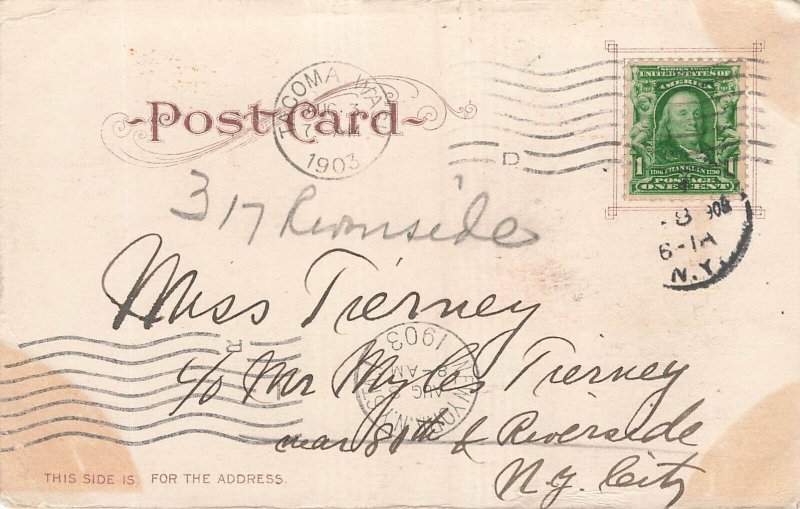 SERIES 1902
UNITED STATES OF AMERICA
1 1706 FRANKLIN 1790 1
POSTAGE
ONE CENT
Post Card
TACOMA WA
AUG 3
7
1903
D
317 Riverside
8
6-1A
N.Y.
Miss Tierney
c/o Mr Myles Tierney
near 89th & Riverside
N.Y. City
R
NEW YORK, N.Y.
AUG 8
AM
1903
THIS SIDE IS FOR THE ADDRESS.